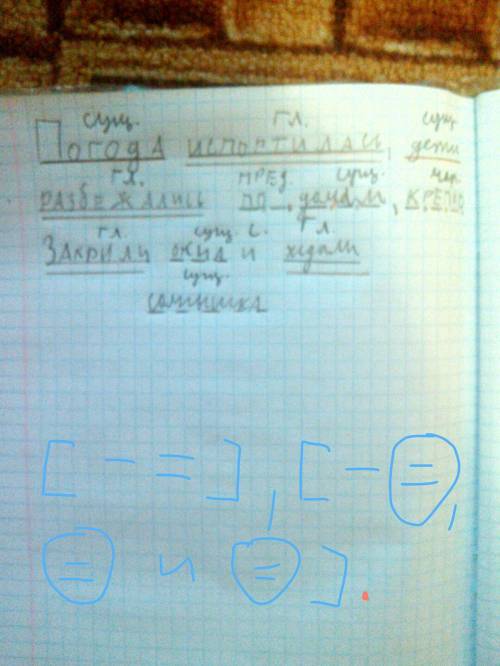 сущ. гл. сущ.
Погода испортилась, дети
гл. пред. сущ. нар.
разбежались по дачам, крепко
гл. сущ. с. гл.
Закрили окна и ждали
сущ.
[ - = ], [ - =,
= и = ].